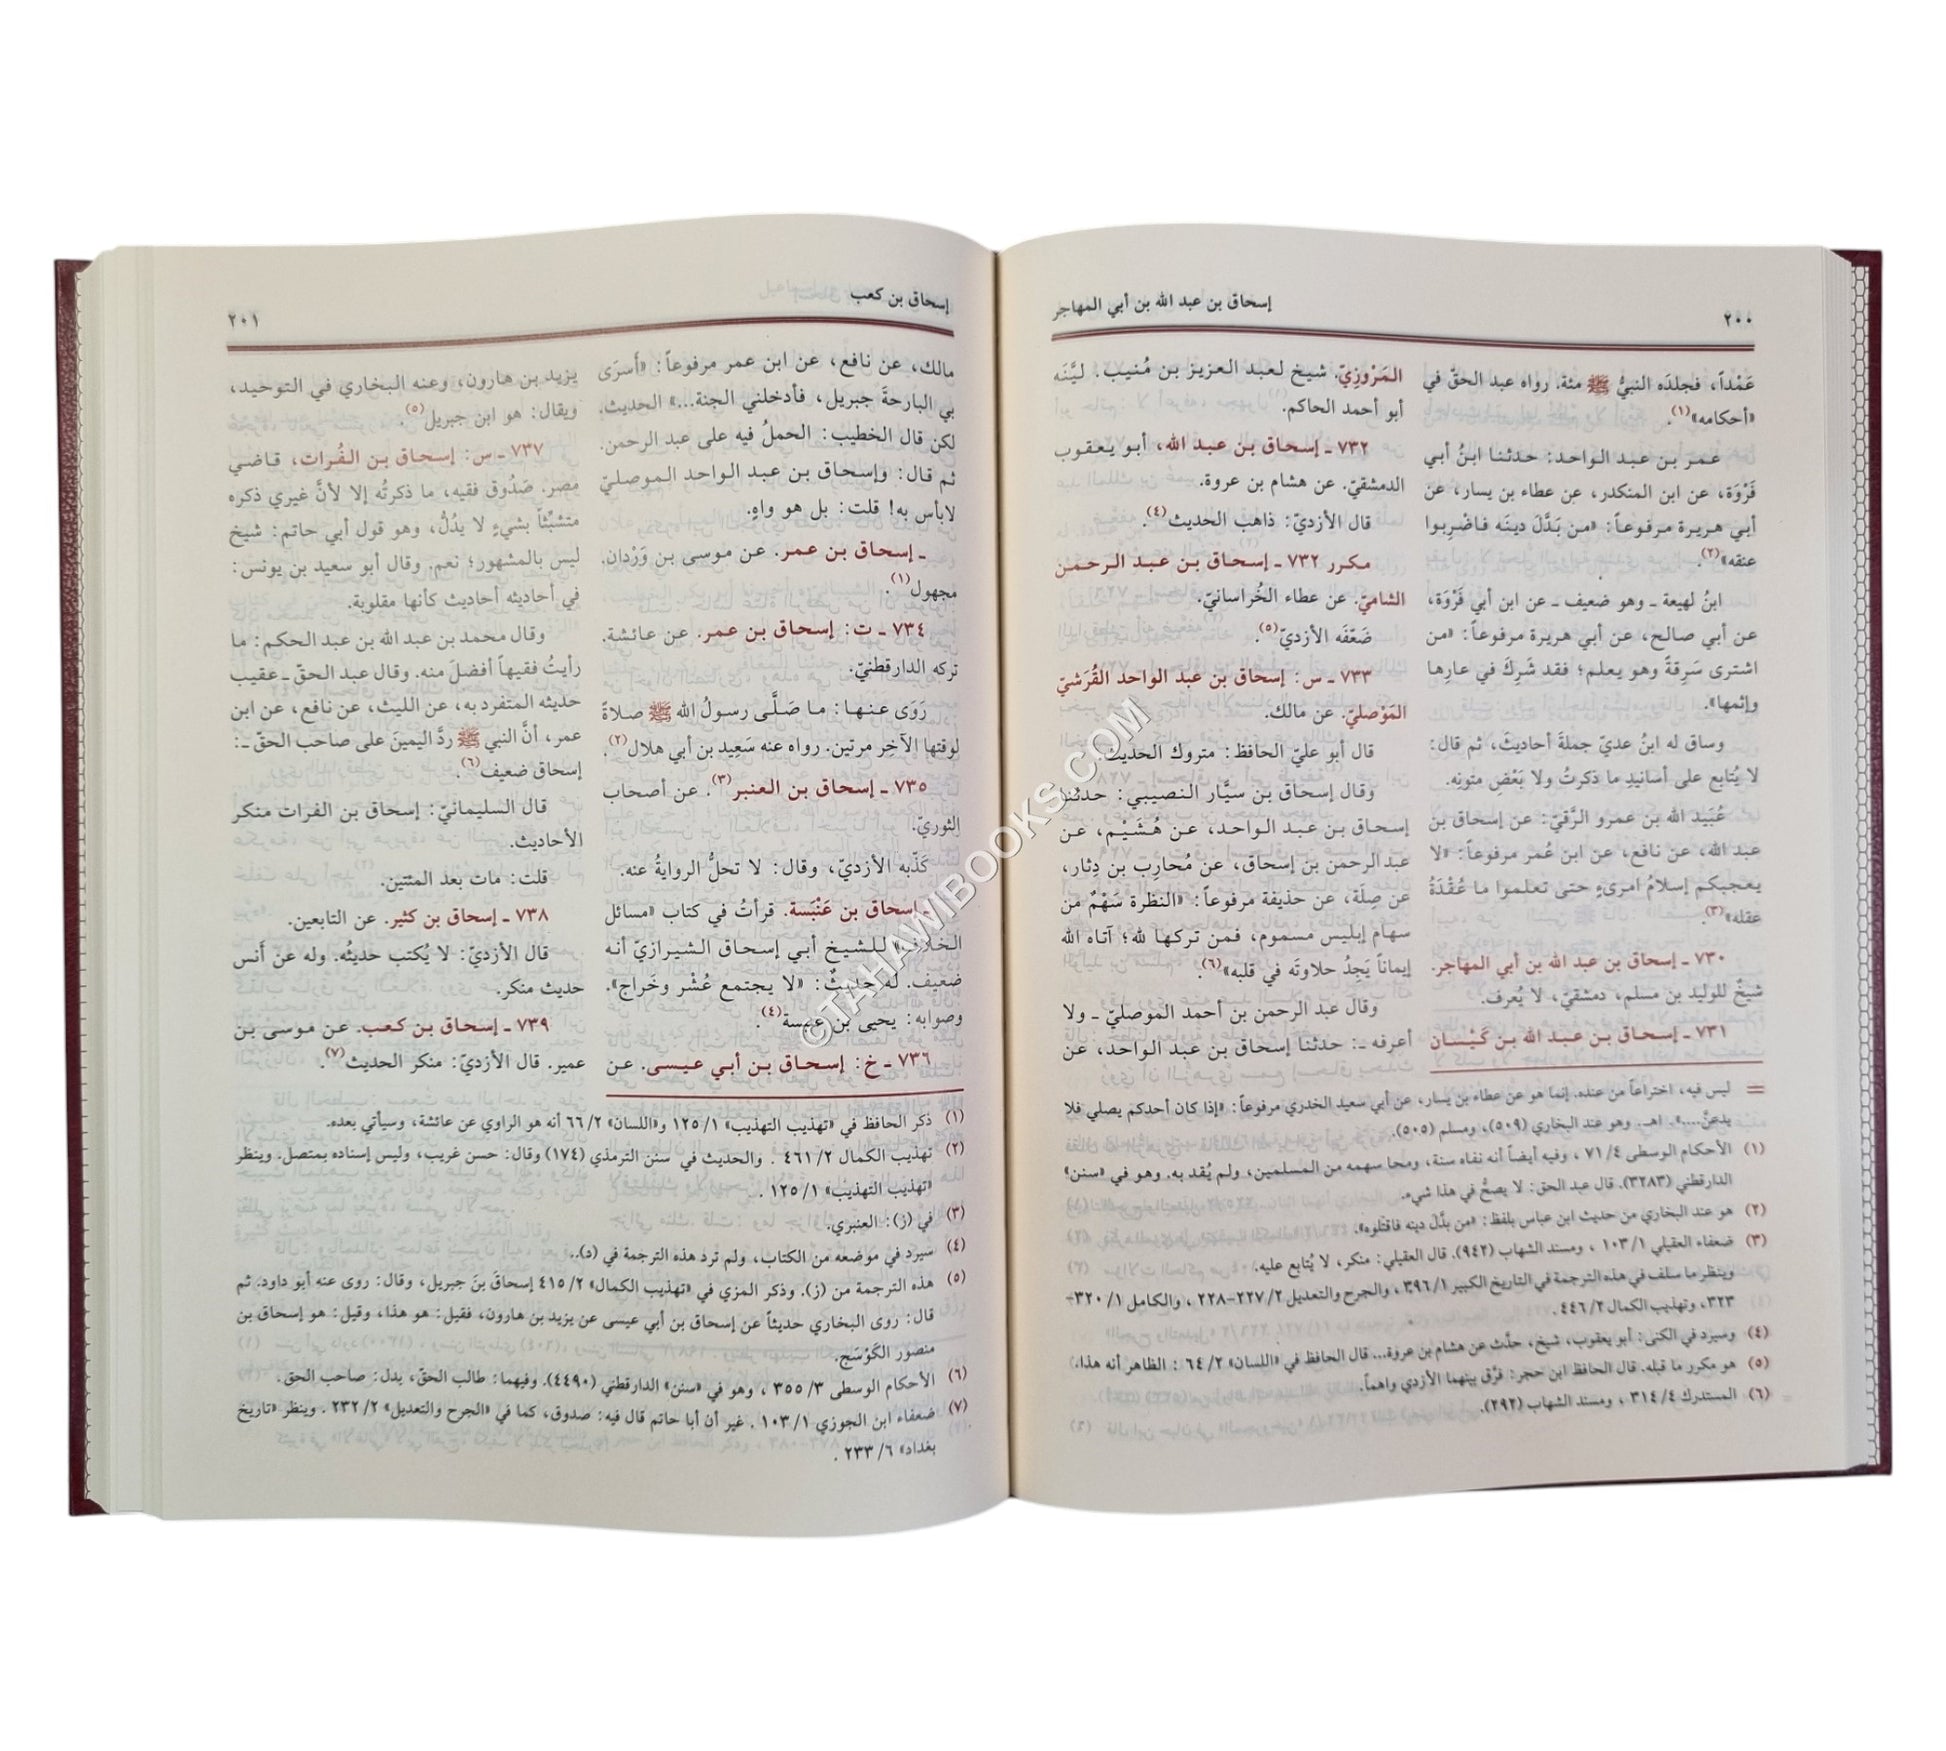 ٢٠٠
إسحاق بن عبد الله بن أبي المهاجر
عَمْداً، فجلدَه النبيُّ ﷺ مئة. رواه عبد الحقّ في
«أحكامه»(١).
عمر بن عبد الواحد: حدثنا ابنُ أبي
فَرْوَة، عن ابن المنكدر، عن عطاء بن يسار، عن
أبي هريرة مرفوعاً: «من بَدَّلَ دينَه فاضْرِبوا
عنقه»(٢).
ابنُ لهيعة ـ وهو ضعيف ـ عن ابن أبي فَرْوَة،
عن أبي صالح، عن أبي هريرة مرفوعاً: «من
اشترى سَرِقةً وهو يعلم؛ فقد شَرِكَ في عارِها
وإثمها».
وساق له ابنُ عديّ جملةَ أحاديثَ، ثم قال:
لا يُتابع على أسانيدِ ما ذكرتُ ولا بَعْضِ متونِه.
عُبَيد الله بن عمرو الرَّقيّ: عن إسحاق بن
عبد الله، عن نافع، عن ابن عُمر مرفوعاً: «لا
يعجبكم إسلامُ امرىءٍ حتى تعلموا ما عُقْدَةُ
عقله»(٣).
٧٣٠ ـ إسحاق بن عبد الله بن أبي المهاجر.
شيخٌ للوليد بن مسلم، دمشقيّ، لا يُعرف.
٧٣١ ـ إسحاق بن عبد الله بن كَيْسان
المَرْوزِيّ. شيخ لعبد العزيز بن مُنيب. ليَّنَه
أبو أحمد الحاكم.
٧٣٢ ـ إسحاق بن عبد الله، أبو يعقوب
الدمشقيّ. عن هشام بن عروة.
قال الأزديّ: ذاهب الحديث(٤).
مكرر ٧٣٢ ـ إسحاق بن عبد الرحمن
الشاميّ. عن عطاء الخُراسانيّ.
ضَعّفَه الأزديّ(٥).
٧٣٣ ـ س: إسحاق بن عبد الواحد القُرَشيّ
المَوْصليّ. عن مالك.
قال أبو عليّ الحافظ: متروك الحديث.
وقال إسحاق بن سيَّار النصيبي: حدثنا
إسحاق بن عبد الواحد، عن هُشَيْم، عن
عبد الرحمن بن إسحاق، عن مُحارِب بن دِثار،
عن صِلَة، عن حذيفة مرفوعاً: «النظرة سَهْمٌ من
سهام إبليس مسموم، فمن تركها لله؛ آتاه الله
إيماناً يَجِدُ حلاوتَه في قلبه»(٦).
وقال عبد الرحمن بن أحمد الموصليّ ـ ولا
أعرفه ـ: حدثنا إسحاق بن عبد الواحد، عن
= ليس فيه، اختراعاً من عنده. إنما هو عن عطاء بن يسار، عن أبي سعيد الخدري مرفوعاً: «إذا كان أحدكم يصلي فلا
يدعنَّ....». اهـ. وهو عند البخاري (٥٠٩)، ومسلم (٥٠٥).
(١) الأحكام الوسطى ٤/ ٧١، وفيه أيضاً أنه نفاه سنة، ومحا سهمه من المسلمين، ولم يُقد به. وهو في «سنن»
الدارقطني (٣٢٨٣). قال عبد الحق: لا يصحُّ في هذا شيء.
(٢) هو عند البخاري من حديث ابن عباس بلفظ: «من بدَّل دينه فاقتلوه».
(٣) ضعفاء العقيلي ١/ ١٠٣، ومسند الشهاب (٩٤٢). قال العقيلي: منكر، لا يُتابع عليه.
وينظر ما سلف في هذه الترجمة في التاريخ الكبير ١/ ٣٩٦، والجرح والتعديل ٢/ ٢٢٧-٢٢٨، والكامل ١/ ٣٢٠-
٣٢٣، وتهذيب الكمال ٢/ ٤٤٦.
(٤) وسيرد في الكنى: أبو يعقوب، شيخ، حدَّث عن هشام بن عروة... قال الحافظ في «اللسان» ٢/ ٦٤: الظاهر أنه هذا.
(٥) هو مكرر ما قبله. قال الحافظ ابن حجر: فرَّق بينهما الأزدي واهماً.
(٦) المستدرك ٤/ ٣١٤، ومسند الشهاب (٢٩٢).
إسحاق بن كعب
٢٠١
مالك، عن نافع، عن ابن عمر مرفوعاً: «أسرَى
بي البارحةَ جبريل، فأدخلني الجنة...» الحديث.
لكن قال الخطيب: الحملُ فيه على عبد الرحمن.
ثم قال: وإسحاق بن عبد الواحد الموصليّ
لابأس به! قلت: بل هو واهٍ.
ـ إسحاق بن عمر. عن موسى بن وَرْدان.
مجهول(١).
٧٣٤ ـ ت: إسحاق بن عمر. عن عائشة.
تركه الدارقطنيّ.
رَوَى عنها: ما صَلَّى رسولُ الله ﷺ صلاةً
لوقتها الآخِر مرتين. رواه عنه سَعِيد بن أبي هلال(٢).
٧٣٥ ـ إسحاق بن العنبر(٣). عن أصحاب
الثوريّ.
كَذّبه الأزديّ، وقال: لا تحلُّ الروايةُ عنه.
ـ إسحاق بن عَنْبَسة. قرأتُ في كتاب «مسائل
الخلاف» للشيخ أبي إسحاق الشيرازيّ أنه
ضعيف. له حديثٌ: «لا يجتمع عُشْر وخَراج».
وصوابه: يحيى بن عنبسة(٤).
٧٣٦ ـ خ: إسحاق بن أبي عيسى. عن
يزيد بن هارون، وعنه البخاري في التوحيد،
ويقال: هو ابن جبريل(٥).
٧٣٧ ـ س: إسحاق بن الفُرات، قاضي
مصر. صَدُوق فقيه، ما ذكرتُه إلا لأنَّ غيري ذكره
متشبِّثاً بشيءٍ لا يدُلُّ، وهو قول أبي حاتم: شيخ
ليس بالمشهور؛ نعم. وقال أبو سعيد بن يونس:
في أحاديثه أحاديث كأنها مقلوبة.
وقال محمد بن عبد الله بن عبد الحكم: ما
رأيتُ فقيهاً أفضلَ منه. وقال عبد الحقّ ـ عقيب
حديثه المتفرد به، عن الليث، عن نافع، عن ابن
عمر، أنَّ النبي ﷺ ردَّ اليمينَ على صاحب الحقّ ـ:
إسحاق ضعيف(٦).
قال السليمانيّ: إسحاق بن الفرات منكر
الأحاديث.
قلت: مات بعد المئتين.
٧٣٨ ـ إسحاق بن كثير. عن التابعين.
قال الأزديّ: لا يُكتب حديثُه. وله عن أنس
حديث منكر.
٧٣٩ ـ إسحاق بن كعب. عن موسى بن
عمير. قال الأزديّ: منكر الحديث(٧).
(١) ذكر الحافظ في «تهذيب التهذيب» ١/ ١٢٥ و«اللسان» ٢/ ٦٦ أنه هو الراوي عن عائشة، وسيأتي بعده.
(٢) تهذيب الكمال ٢/ ٤٦١. والحديث في سنن الترمذي (١٧٤) وقال: حسن غريب، وليس إسناده بمتصل. وينظر
«تهذيب التهذيب» ١/ ١٢٥.
(٣) في (ز): العنبري.
(٤) سيرد في موضعه من الكتاب، ولم ترد هذه الترجمة في (د)..
(٥) هذه الترجمة من (ز). وذكر المزي في «تهذيب الكمال» ٢/ ٤١٥ إسحاقَ بنَ جبريل، وقال: روى عنه أبو داود. ثم
قال: روى البخاري حديثاً عن إسحاق بن أبي عيسى عن يزيد بن هارون، فقيل: هو هذا، وقيل: هو إسحاق بن
منصور الكَوْسَج.
(٦) الأحكام الوسطى ٣/ ٣٥٥، وهو في «سنن» الدارقطني (٤٤٩٠). وفيهما: طالب الحقّ، بدل: صاحب الحق.
(٧) ضعفاء ابن الجوزي ١/ ١٠٣. غير أن أبا حاتم قال فيه: صدوق، كما في «الجرح والتعديل» ٢/ ٢٣٢. وينظر «تاريخ
بغداد» ٦/ ٢٣٣.
©TAHAWIBOOKS.COM